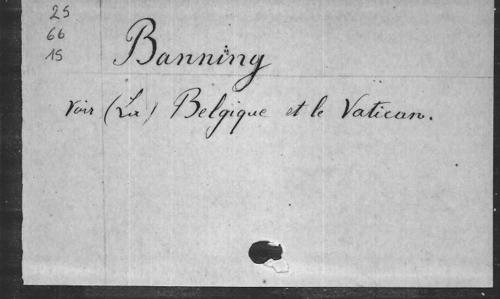 25
66
15
Banning
Voir (La) Belgique et le Vatican.